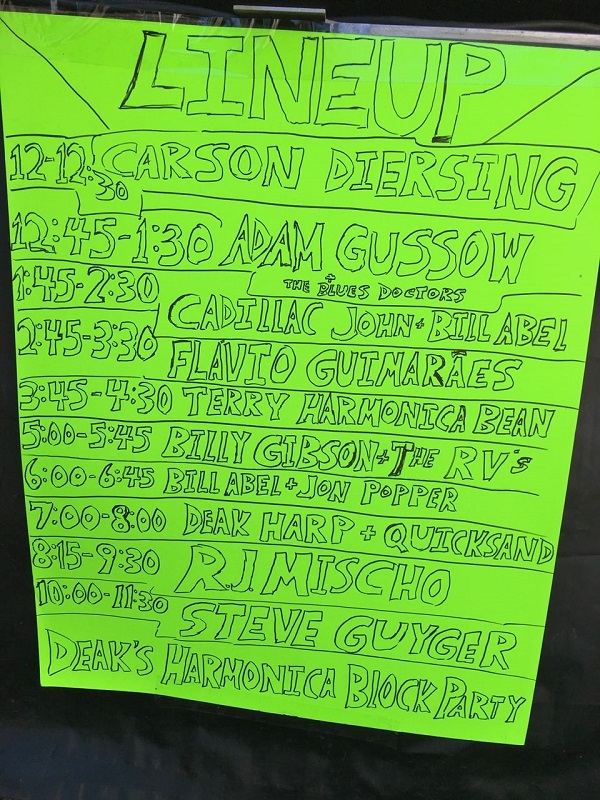 LINEUP
12-12:30 CARSON DIERSING
12:45-1:30 ADAM GUSSOW
+ THE BLUES DOCTORS
1:45-2:30 CADILLAC JOHN + BILL ABEL
2:45-3:30 FLÁVIO GUIMARÃES
3:45-4:30 TERRY HARMONICA BEAN
5:00-5:45 BILLY GIBSON + THE RV'S
6:00-6:45 BILL ABEL + JON POPPER
7:00-8:00 DEAK HARP + QUICKSAND
8:15-9:30 R.J. MISCHO
10:00-11:30 STEVE GUYGER
DEAK'S HARMONICA BLOCK PARTY